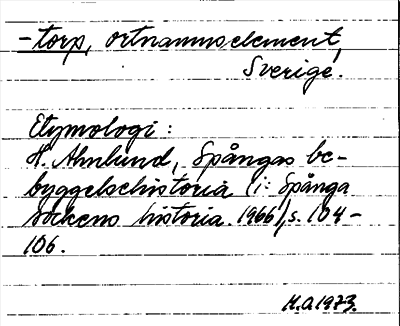 -torp, ortnamnselement,
Sverige.
Etymologi:
H. Ahnlund, Spångas be-
byggelsehistoria (i: Spånga
sockens historia. 1966), s. 104-
106.
K.O.1973.